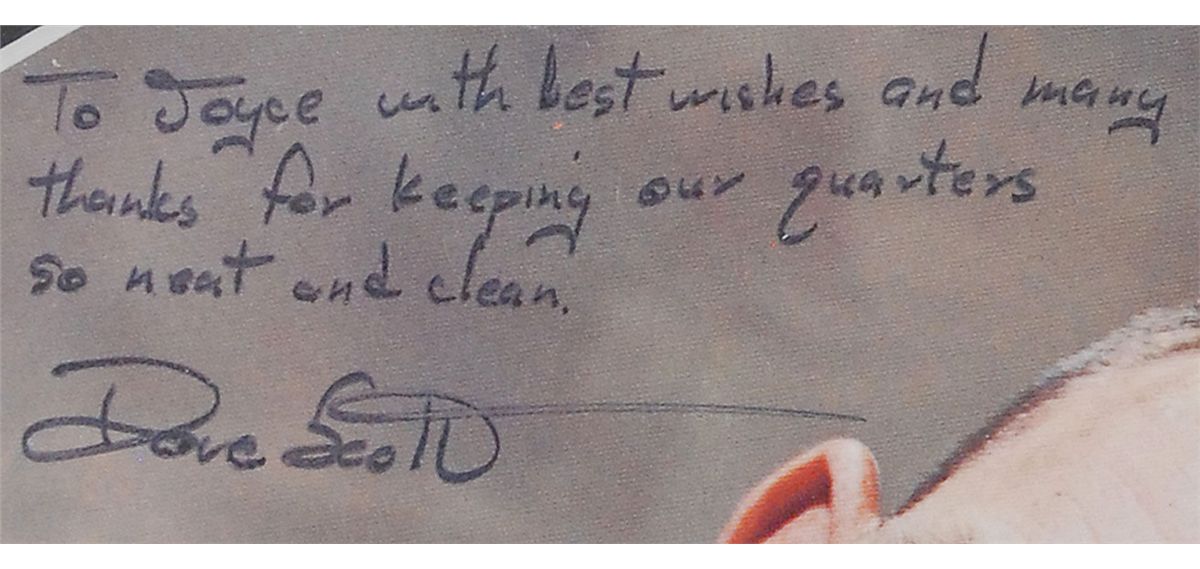 To Joyce with best wishes and many
thanks for keeping our quarters
so neat and clean.
Dave Scott